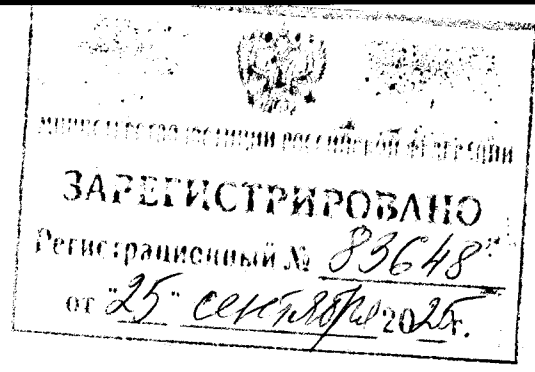 МИНИСТЕРСТВО ЮСТИЦИИ РОССИЙСКОЙ ФЕДЕРАЦИИ
ЗАРЕГИСТРИРОВАНО
Регистрационный № 83648
от "25" сентября 2025г.